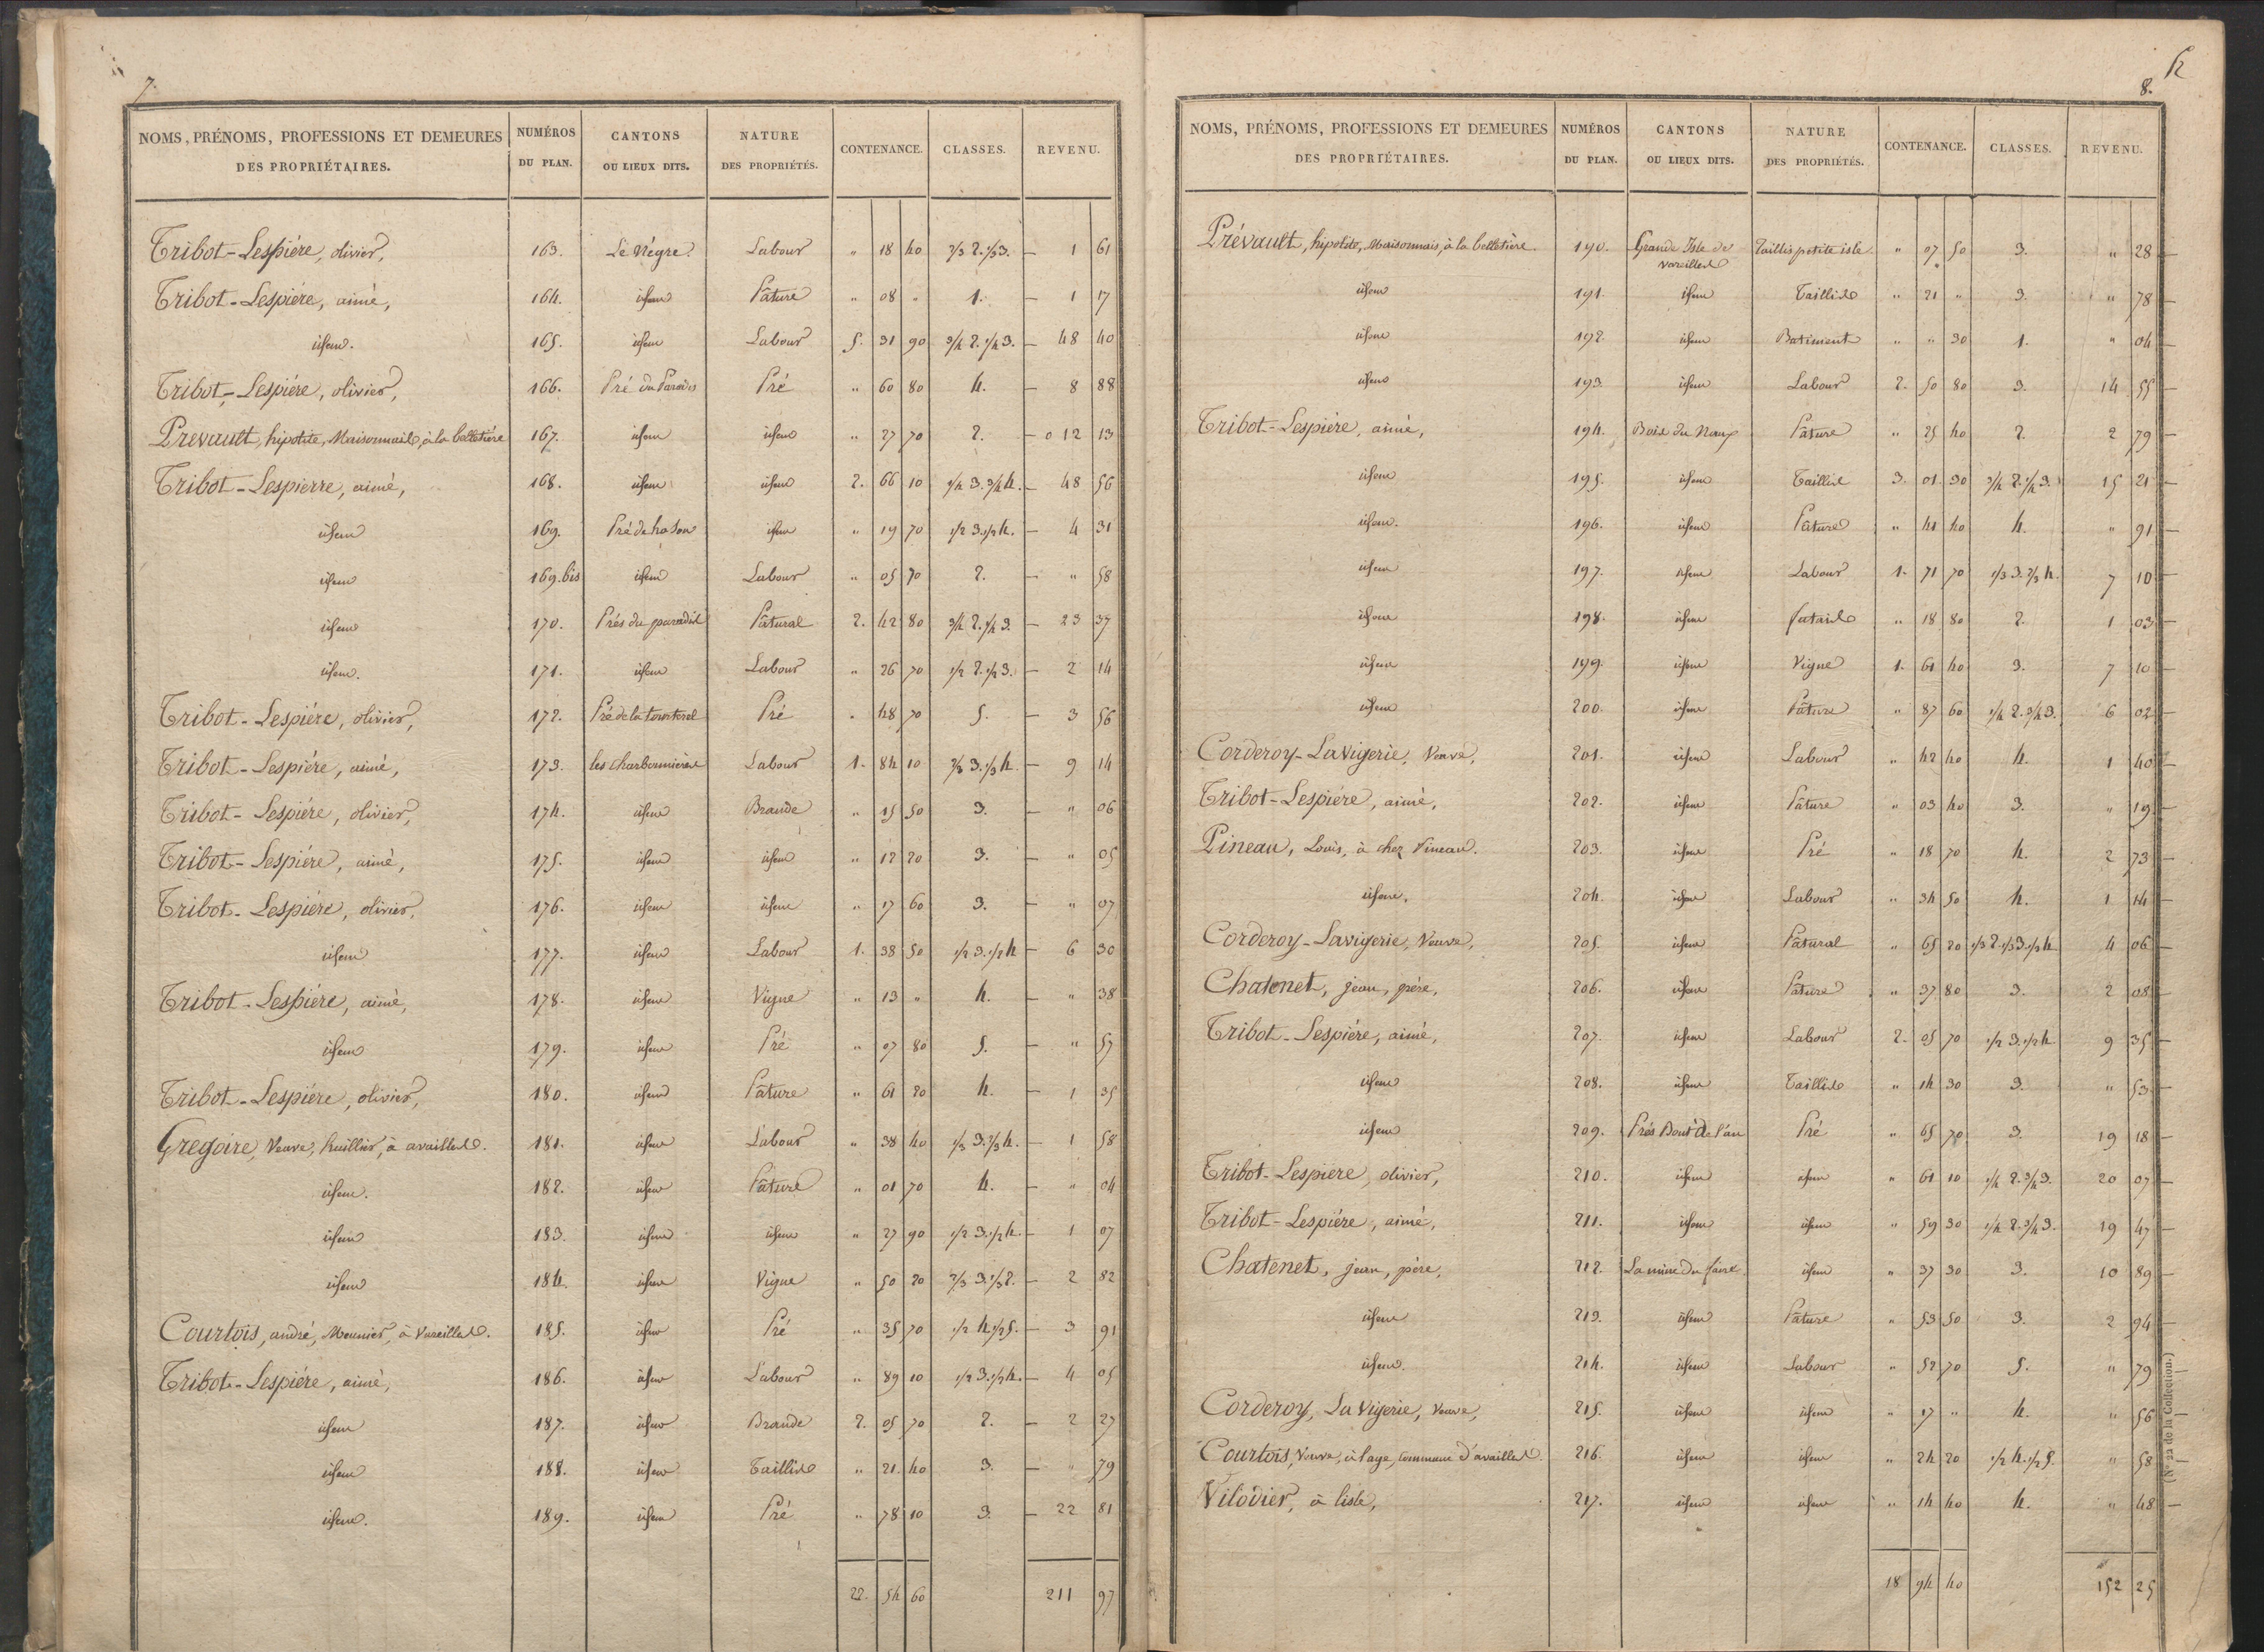 7.
NOMS, PRÉNOMS, PROFESSIONS ET DEMEURES DES PROPRIÉTAIRES. NUMÉROS DU PLAN. CANTONS OU LIEUX DITS. NATURE DES PROPRIÉTÉS. CONTENANCE. CLASSES. REVENU.
Tribot-Lespiére, olivier, 163. Le Négre Labour " 18 40 2/3 2. 1/3 3. — 1 61
Tribot-Lespiére, aimé, 164. idem Pâture " 08 " 1. — 1 17
idem. 165. idem Labour 5. 31 90 3/4 2. 1/4 3. — 48 40
Tribot-Lespiére, olivier, 166. Pré du Paradis Pré " 60 80 4. — 8 88
Prevault, hipolite, Maisonnais, à la belletiére 167. idem idem " 27 70 2. — 12 13
Tribot-Lespierre, aimé, 168. idem idem 2. 66 10 1/4 3. 3/4 4. — 48 56
idem 169. Pré de idem " 19 70 1/2 3. 1/2 4. — 4 31
idem 169.bis idem Labour " 05 70 2. — " 58
idem 170. Prés du paradis Pâtural 2. 42 80 3/4 2. 1/4 3. — 23 37
idem. 171. idem Labour " 26 70 1/2 2. 1/2 3. — 2 14
Tribot-Lespiére, olivier, 172. Pré de la Pré " 48 70 5. — 3 56
Tribot-Lespiére, aimé, 173. les charbonnieres Labour 1. 84 10 2/3 3. 1/3 4. — 9 14
Tribot-Lespiére, olivier, 174. idem Brande " 15 50 3. — " 06
Tribot-Lespiére, aimé, 175. idem idem " 12 20 3. — " 05
Tribot-Lespiére, olivier, 176. idem idem " 17 60 3. — " 07
idem 177. idem Labour 1. 38 50 1/2 3. 1/2 4 — 6 30
Tribot-Lespiére, aimé, 178. idem Vigne " 13 " 4. — " 38
idem 179. idem Pré " 07 80 5. — " 57
Tribot-Lespiére, olivier, 180. idem Pâture " 61 20 4. — 1 35
Gregoire, Veuve, huillier, à availles. 181. idem Labour " 38 40 1/3 3. 2/3 4. — 1 58
idem. 182. idem Pâture " 01 70 4. — " 04
idem 183. idem idem " 27 90 1/2 3. 1/2 4. — 1 07
idem 184. idem Vigne " 50 20 2/3 3. 1/3 2. — 2 82
Courtois, andré, Meunier, à Vareilles. 185. idem Pré " 35 70 1/2 4. 1/2 5. — 3 91
Tribot-Lespiére, aimé, 186. idem Labour " 89 10 1/2 3. 1/2 4. — 4 05
idem 187. idem Brande 2. 05 70 2. — 2 27
idem 188. idem Taillis " 21 40 3. — " 79
idem. 189. idem Pré " 78 10 3. — 22 81
22. 54 60 211 97
4
8.
NOMS, PRÉNOMS, PROFESSIONS ET DEMEURES DES PROPRIÉTAIRES. NUMÉROS DU PLAN. CANTONS OU LIEUX DITS. NATURE DES PROPRIÉTÉS. CONTENANCE. CLASSES. REVENU.
Prévault, hipolite, Maisonnais, à la belletiére. 190. Grande Isle de vareilles Taillis petite isle " 07 50 3. " 28 —
idem 191. idem Taillis " 21 " 3. " 78 —
idem 192. idem Batiment " " 30 1. " 04 —
idem 193. idem Labour 2. 50 80 3. 14 55 —
Tribot-Lespiére, aimé, 194. Bois du Pâture " 25 40 2. 2 79 —
idem 195. idem Taillis 3. 01 30 3/4 2. 1/4 3. 15 21 —
idem. 196. idem Pâture " 41 40 4. " 91 —
idem 197. idem Labour 1. 71 70 1/3 3. 2/3 4. 7 10 —
idem 198. idem futaie " 18 80 2. 1 03 —
idem 199. idem Vigne 1. 61 40 3. 7 10 —
idem 200. idem Pâture " 87 60 1/4 2. 3/4 3. 6 02 —
Corderoy-Lavigerie, Veuve, 201. idem Labour " 42 40 4. 1 40 —
Tribot-Lespiére, aimé, 202. idem Pâture " 03 40 3. " 19 —
Pineau, Louis, à chez Pineau. 203. idem Pré " 18 70 4. 2 73 —
idem. 204. idem Labour " 34 50 4. 1 14 —
Corderoy-Lavigerie, Veuve, 205. idem Pâtural " 65 20 1/3 2. 1/3 3. 1/3 4 4 06 —
Chatenet, jean, pére, 206. idem Pâture " 37 80 3. 2 08 —
Tribot-Lespiére, aimé, 207. idem Labour 2. 05 70 1/2 3. 1/2 4 9 35 —
idem 208. idem Taillis " 14 30 3. " 53 —
idem 209. Prés Bout de l'an Pré " 65 70 3. 19 18 —
Tribot-Lespiere, olivier, 210. idem idem " 61 10 1/4 2. 3/4 3. 20 07 —
Tribot-Lespiére, aimé, 211. idem idem " 59 30 1/4 2. 3/4 3. 19 47 —
Chatenet, jean, pére, 212. La mine du idem " 37 30 3. 10 89 —
idem 213. idem Pâture " 53 50 3. 2 94 —
idem. 214. idem Labour " 52 70 5. " 79 —
Corderoy, La Vigerie, Veuve, 215. idem idem " 17 " 4. " 56 —
Courtois, Veuve, à l'age, commune d'availles. 216. idem idem " 24 20 1/2 4. 1/2 5. " 58 —
Vilodier, à lisle, 217. idem idem " 14 40 4. " 48 —
18 94 40 152 25
(N° 22 de la Collection.)